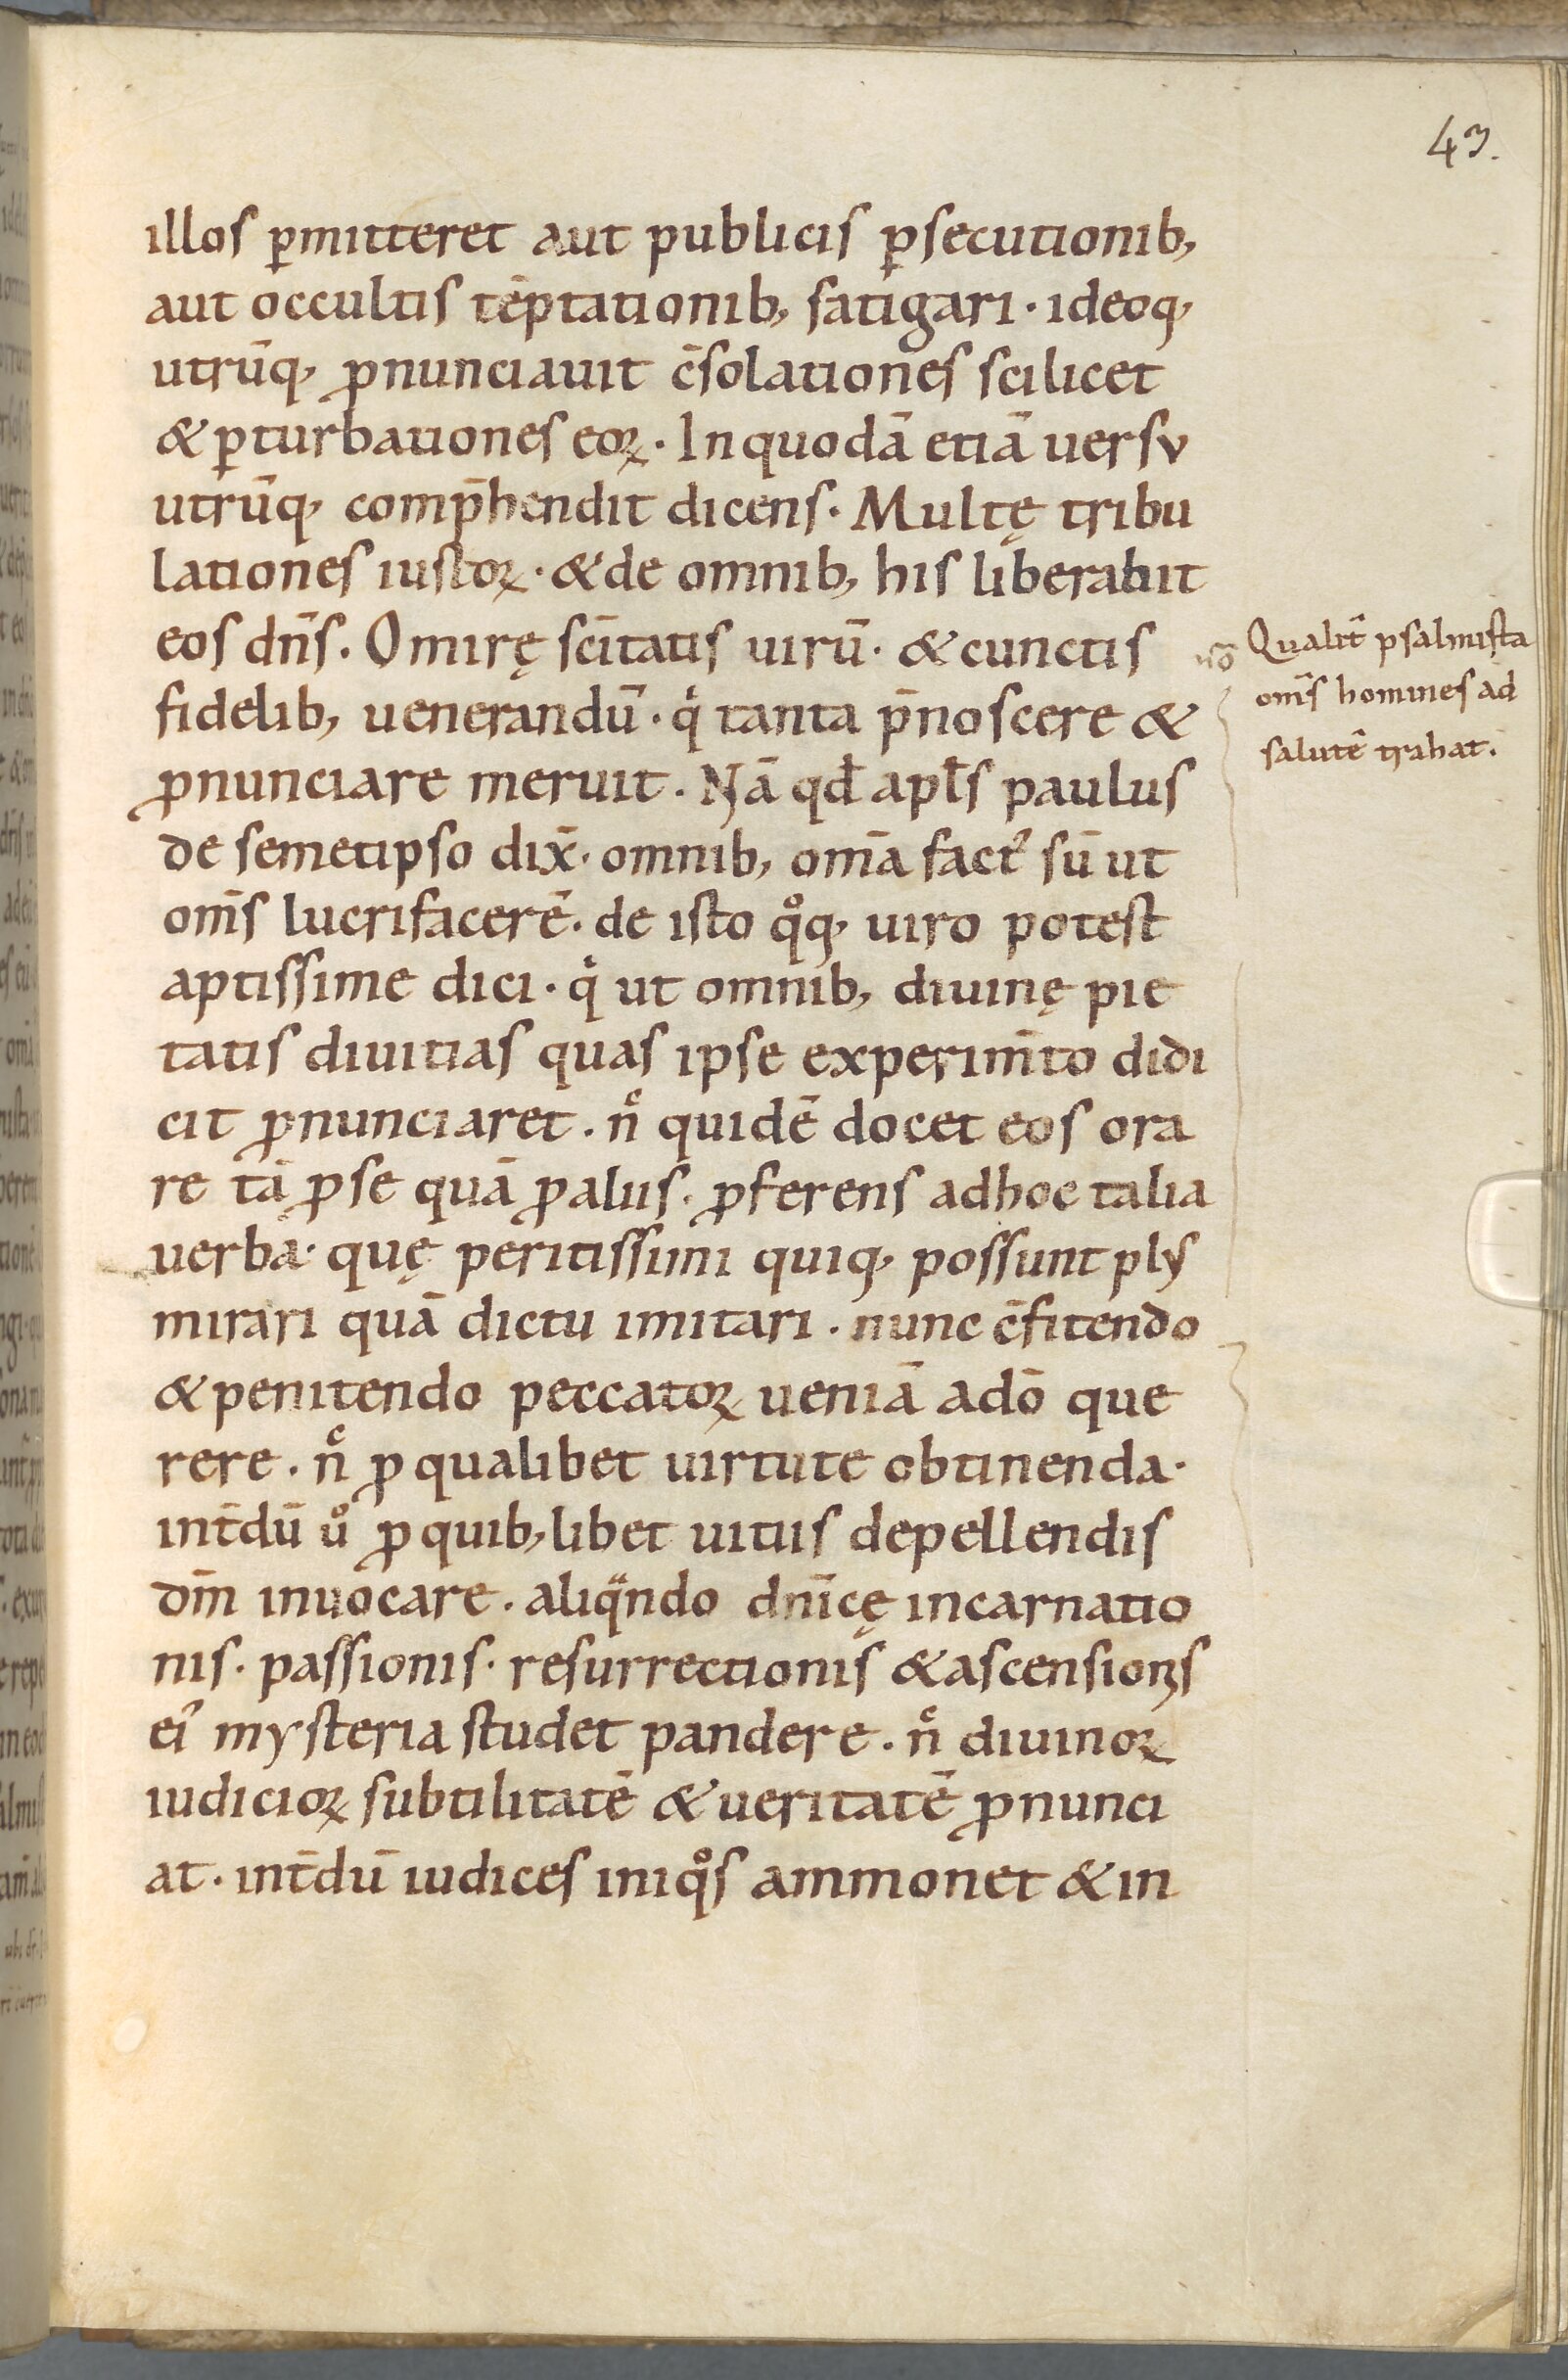 43.
illos p̄mitteret aut publicis p̄secutionib,
aut occultis tēptationib, fatigari · ideoq,
utrūq, ꝓnunciauit c̄solationes scilicet
& p̄turbationes eoꝝ · In quodā etiā uersu
utrūq, comp̄hendit dicens · Multę tribu
lationes iustoꝝ · & de omnib, his liberabit
eos dn̄s . O mirę sc̄itatis uirū · & cunctis
fidelib, uenerandū · qͥ tanta p̄noscere &
ꝓnunciare meruit . Nā qd̄ apl̄s paulus
de semetipso dix̄ · omnib, om̄a factꝰ sū ut
om̄s lucrifacerē · de isto qͦq, uiro potest
aptissime dici · qͥ ut omnib, diuinę pie
tatis diuitias quas ipse experim̄to didi
cit ꝓnunciaret . nͨ quidē docet eos ora
re tā ꝓ se quā ꝓ aliis · ꝓferens ad hoc talia
uerba · quę peritissimi quiq, possunt plus
mirari quā dictu imitari · nunc c̄fitendo
& penitendo peccatoꝝ ueniā a dō que
rere . nͨ ꝓ qualibet uirtute obtinenda ·
int̄dū uͦ ꝓ quib,libet uitiis depellendis
dm̄ inuocare . aliqᷓndo dn̄icę incarnatio
nis · passionis · resurrectionis & ascensionis
eiꝰ mysteria studet pandere . nͨ diuinoꝝ
iudicioꝝ subtilitatē & ueritatē ꝓnunci
at · int̄dū iudices iniqͦs ammonet & in
Qualit̄ psalmista
om̄s homines ad
salutē trahat .